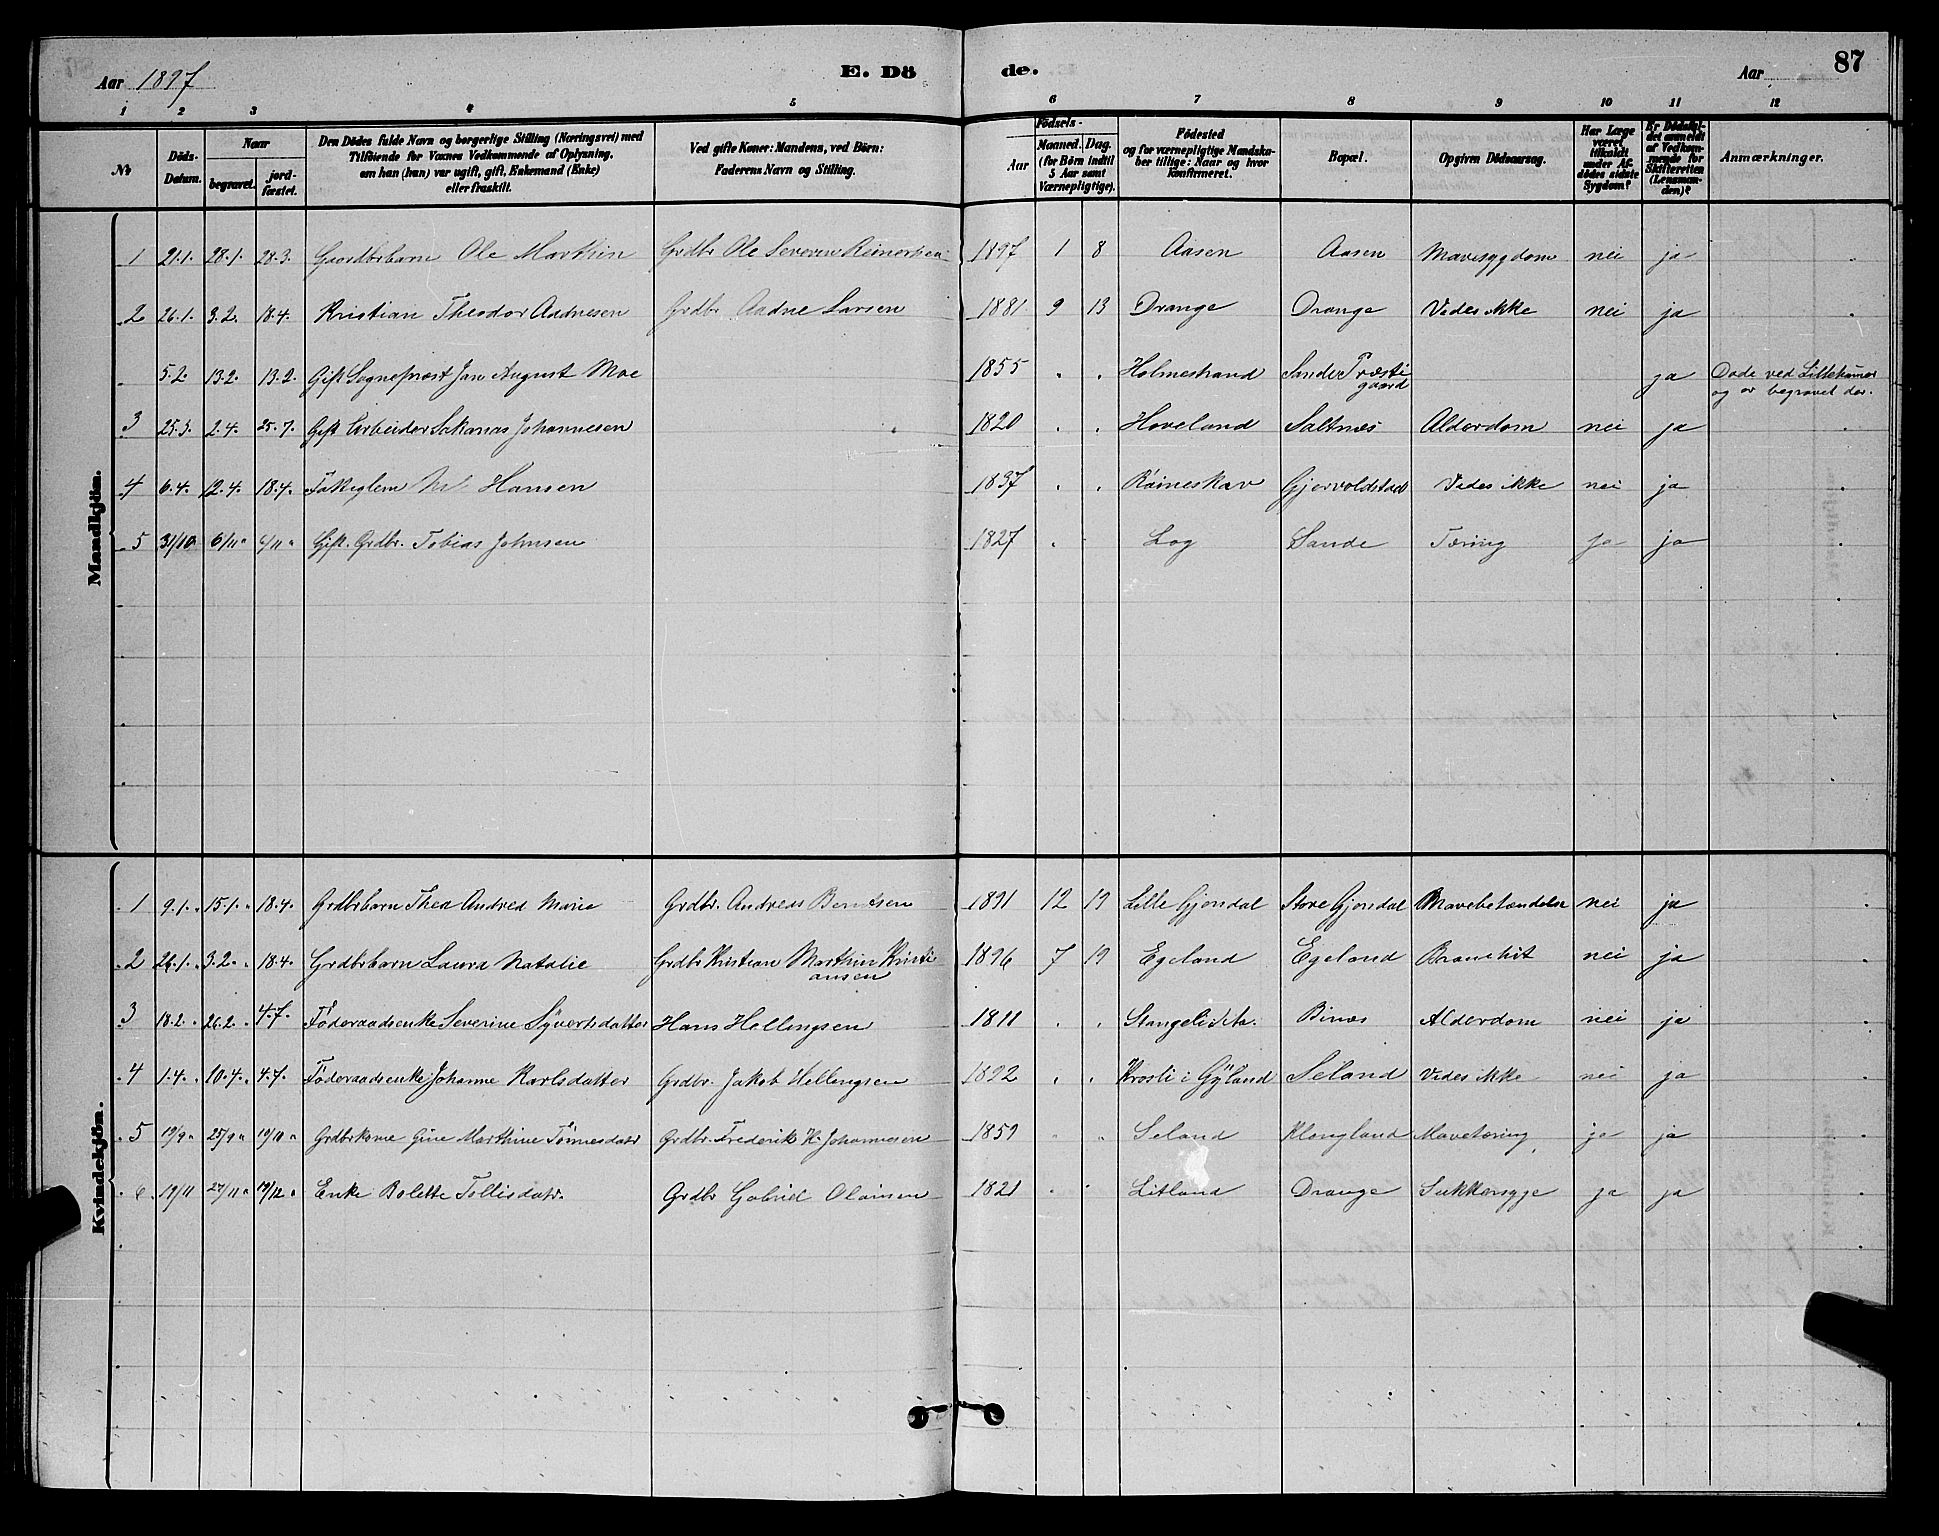 Aar 1897 E. Dö de. Aar 87
1 2 3 4 5 6 7 8 9 10 11 12
No Döds-Datum. Naar begravet. jord-fæstet. Den Dödes fulde Navn og borgerlige Stilling (Næringsvei) med Tilföiende for Voxnes Vedkommende af Oplysning, om han (hun) var ugift, gift, Enkemand (Enke) eller fraskilt. Ved gifte Koner: Mandens, ved Börn: Faderens Navn og Stilling. Födsels- Aar Maaned. Dag. (for Börn indtil 5 Aar samt Værnepligtige). Födested og for værnepligtige Mandskaber tillige: Naar og hvor konfirmeret. Bopæl. Opgiven Dödsaarsag. Har Læge været tilkaldt under Afdödes sidste Sygdom? Er Dödsfaldet anmeldt af Vedkommende for Skifteretten (Lensmanden)? Anmærkninger.
Mandkjön.
1 21.1. 28.1. 28.3. Gaardbrbarn Ole Marthin Grdbr Ole Severin Reinertsen 1897 1 8 Aasen Aasen Mavesygdom nei ja
2 26.1. 3.2. 18.4. Kristian Theodor Aadnesen Grdbr Aadne Larsen 1881 9 13 Drange Drange Vides ikke nei ja
5.2. 13.2. 13.2. Gift Sogneprest Jan August Moe 1855 Holmestrand Sande Præstegaard ja Døde ved Lillehamer
og er begravet der.
3 25.3. 2.4. 25.7. Gift Arbeider Sakarias Johannesen 1820 Hoveland Saltnes Alderdom nei ja
4 6.4. 12.4. 18.4. Fattiglem Hansen 1837 Røineskar Gjervoldstad Vides ikke nei ja
5 31/10 6/11 6/11 Gift. Grdbr. Tobias Johnsen 1827 Log Sande Tæring ja ja
Kvindekjön.
1 9.1. 15.1. 18.4. Grdbrbarn Thea Andrea Marie Grdbr. Andreas Berntsen 1891 12 19 Lille Gjerdal Store Gjerdal Mavebetændelse nei ja
2 26.1. 3.2. 18.4. Grdbrbarn Laura Natalie Grdbr Kristian Marthin Kristiansen 1896 7 19 Egeland Egeland Bronchit nei ja
3 18.2. 26.2. 4.7. Føderaadsenke Severine Syvertsdatter Hans Hellingsen 1811 Stangeli Binæs Alderdom nei ja
4 1.4. 10.4. 4.7. Føderaadsenke Johanne Karlsdatter Grdbr. Jakob Hellingsen 1822 Krosli i Gyland Seland Vides ikke nei ja
5 19/9 25/9 19/11 Grdbrkone Gine Marthine Tønnesdatr Grdbr. Frederik H. Johannesen 1859 Seland Klongland Mavetæring ja ja
6 19/11 27/11 19/12 Enke Bolette Tollisdatr. Grdbr Gabriel Olainsen 1821 Litland Drange Sukkersyge ja ja